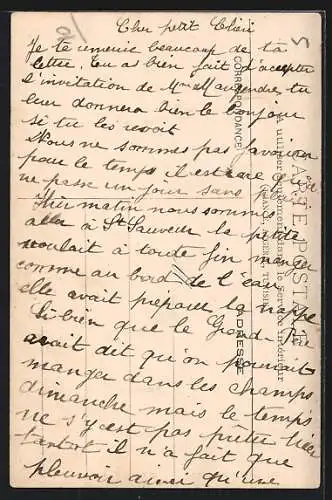 Cher petit Chéri
Je te remercie beaucoup de ta
lettre, tu as bien fait d'accepter
l'invitation de Mme Maugendre, tu
leur donnera bien le bonjour
si tu les revoit
Nous ne sommes pas favoriser
pour le temps il est rare
ne passe un jour sans
Hier matin nous sommes
aller à St Sauveur la petite
voulait à toute fin manger
comme au bord de l'eau
elle avait préparer la nappe
Si bien que le Grand
avait dit qu'on pourrait
manger dans les champs
dimanche mais le temps
ne s'y est pas prêter hier
tantôt il n'a fait que
pleuvoir ainsi qu'une
CARTE POSTALE
CORRESPONDANCE
ADRESSE